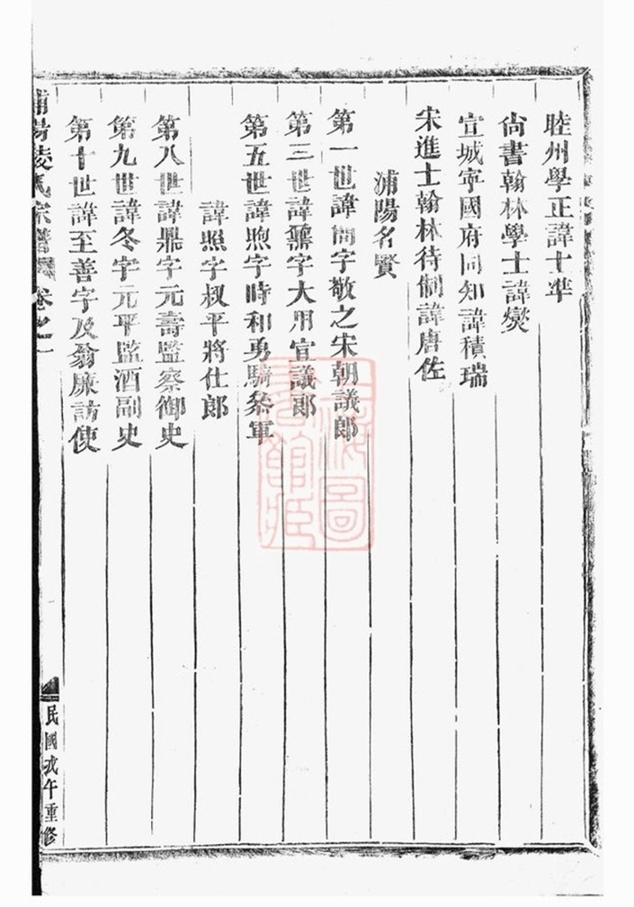 睦州學正諱十準
尙書翰林學士諱爕
宣城寧國府同知諱積瑞
宋進士翰林待制諱唐佐
浦陽名賢
第一世諱問字敬之宋朝議郞
第三世諱鼐字大用宣議郞
第五世諱煦字時和勇騎叅軍
諱照字叔平將仕郞
第八世諱鼎字元壽監察御史
第九世諱冬字元平監酒副史
第十世諱至善字及翁廉訪使
浦陽凌氏宗譜 卷之一
民國戊午重修
上海圖書館藏